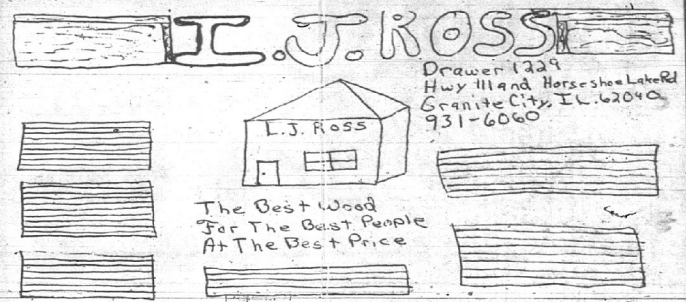 I.J. ROSS
Drawer 1229
Hwy 111 and Horseshoe Lake Rd
Granite City, IL. 62040
931-6060
L.J. ROSS
The Best Wood
For The Best People
At The Best Price